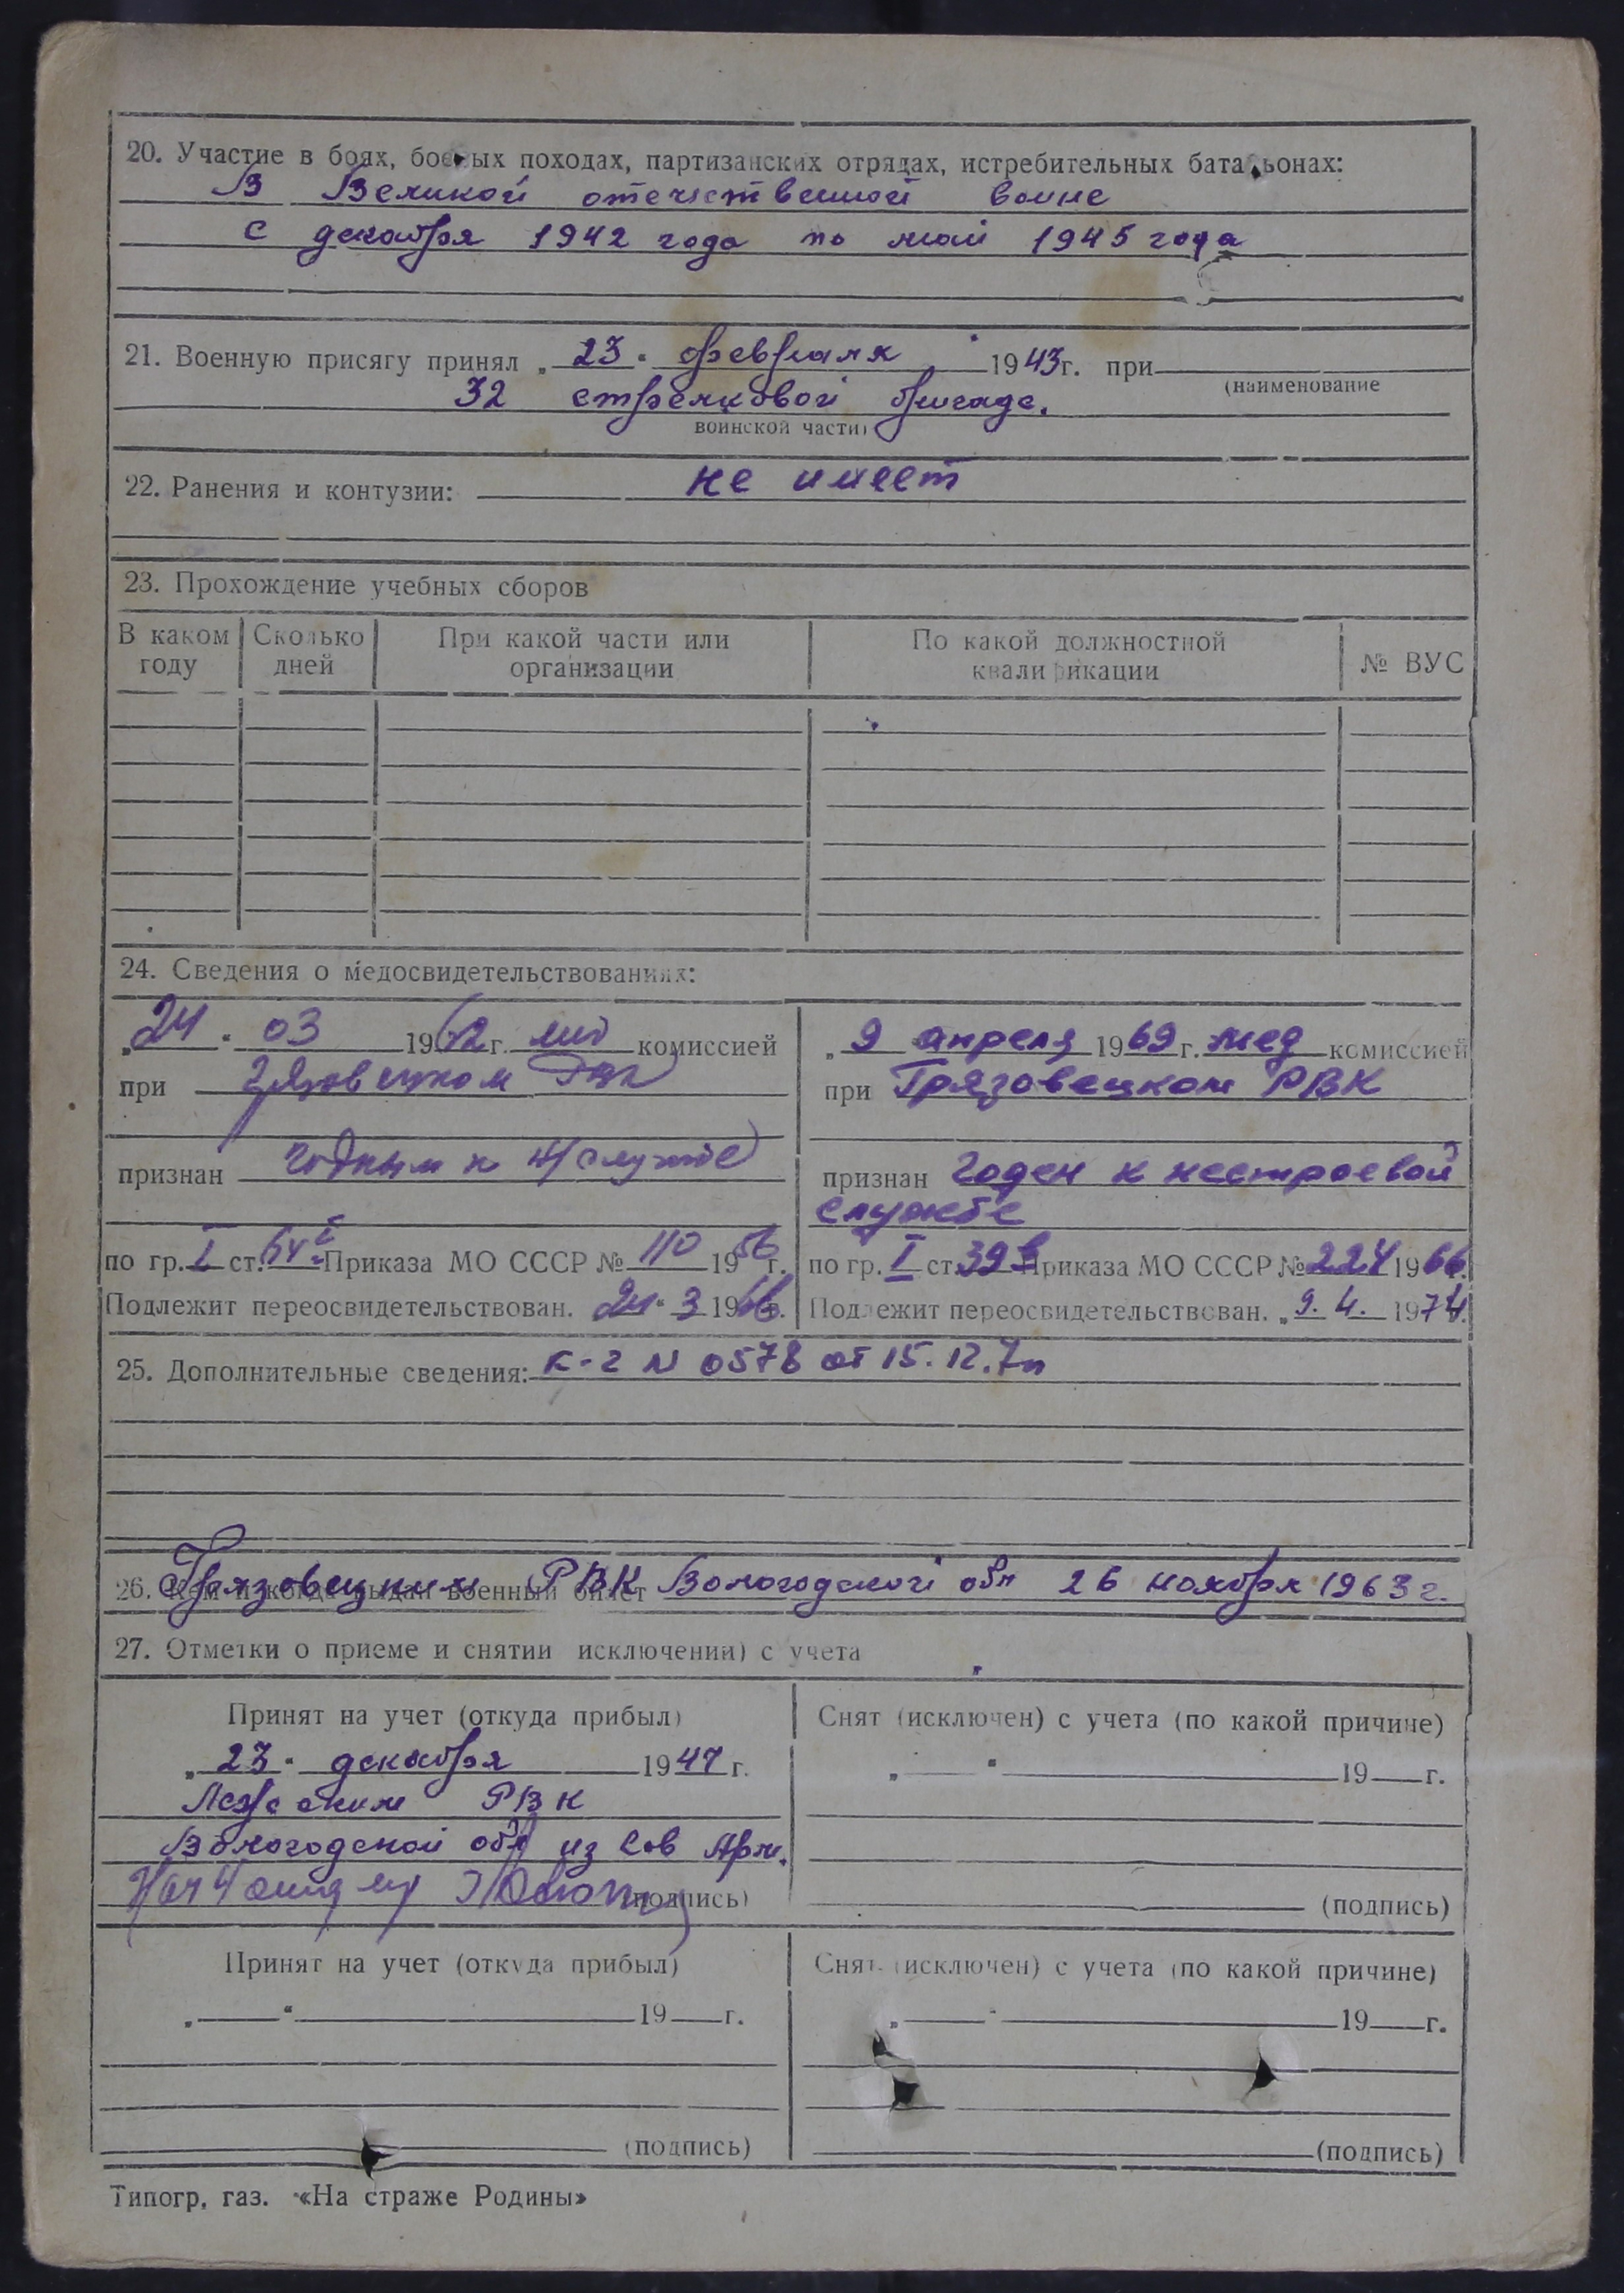 20. Участие в боях, боевых походах, партизанских отрядах, истребительных батальонах:
В Великой отечественной войне
с декабря 1942 года по май 1945 года
21. Военную присягу принял „23" февраля 1943 г. при
(наименование
32 стрелковой бригаде.
воинской части)
22. Ранения и контузии: не имеет
23. Прохождение учебных сборов
В каком году
Сколько дней
При какой части или организации
По какой должностной квалификации
№ ВУС
24. Сведения о медосвидетельствованиях:
„24" 03 1962 г. комиссией
при Грязовецком РВК
признан годным к н/службе
по гр. I ст. Приказа МО СССР № 110 1956 г.
Подлежит переосвидетельствован. 24" 3 1966 г.
„9 апреля 1969 г. мед комиссией
при Грязовецком РВК
признан годен к нестроевой
службе
по гр. I ст. 39в Приказа МО СССР № 224 1966 г.
Подлежит переосвидетельствован. „9. 4. 1974.
25. Дополнительные сведения: к-2 N 0578 от 15.12.
26. Кем и когда выдан военный билет Грязовецким РВК Вологодской обл 26 ноября 1963 г.
27. Отметки о приеме и снятии исключении) с учета
Принят на учет (откуда прибыл)
„23" декабря 1947 г.
РВК
Вологодской обл из Сов Арм.
(подпись)
Снят (исключен) с учета (по какой причине)
„ " 19 г.
(подпись)
Принят на учет (откуда прибыл)
„ " 19 г.
(подпись)
Снят (исключен) с учета (по какой причине)
„ " 19 г.
(подпись)
Типогр, газ. «На страже Родины»